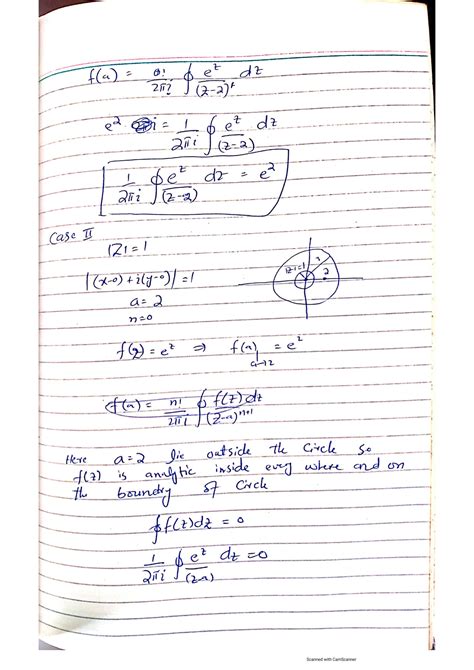 f(a) = 0!/2πi ∮ e^z/(z-2)^1 dz
e^2 i = 1/2πi ∮ e^z/(z-2) dz
1/2πi ∮ e^z/(z-2) dz = e^2
Case II
|z| = 1
|(x-0)+i(y-0)| = 1
|z|=1 3 2
a = 2
n=0
f(z) = e^z ⇒ f(a)|a→2 = e^2
f(a) = n!/2πi ∮ f(z)dz/(z-a)^n+1
Here a=2 lie outside the Circle So
f(z) is analytic inside every where and on
the boundry of Circle
∮f(z)dz = 0
1/2πi ∮ e^z/(z-a) dz = 0
Scanned with CamScanner